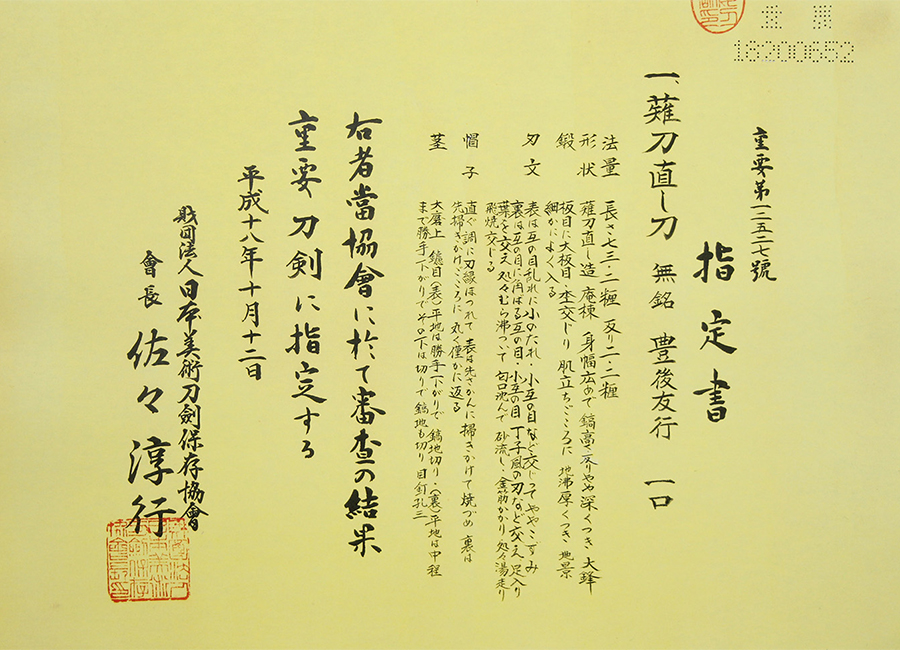 重要
16200652
重要第一二五二七號
指定書
一、薙刀直し刀 無銘 豊後友行 一口
法量 長さ七三・二糎 反り二・二糎
形状 薙刀直し造 庵棟 身幅広めて 鎬高く 反りやや深くつき 大鋒
鍛 板目に大板目・杢交じり 肌立ちごころに 地沸厚くつき 地景
細かによく入る
刃文 表は互の目乱れに小のたれ・小互の目など交じってややこずみ
裏は互の目に角ばる互の目・小互の目 丁子風の刃など交え 足入り
葉を交え 処々むら沸ついて 匂口沈んで 砂流し・金筋かかり 処々湯走り
飛焼交じる
帽子 直ぐ調に刃縁ほつれて 表は先さかんに掃きかけて焼づめ 裏は
先掃きかけごころに 丸く僅かに返る
茎 大磨上 鑢目(表)平地は勝手下がりで 鎬地切り・(裏)平地は中程
まで勝手下がりでその下は切りで 鎬地も切り 目釘孔三
右者當協會に於て審査の結果
重要刀剣に指定する
平成十八年十月十二日
財団法人日本美術刀劍保存協會
會長 佐々淳行